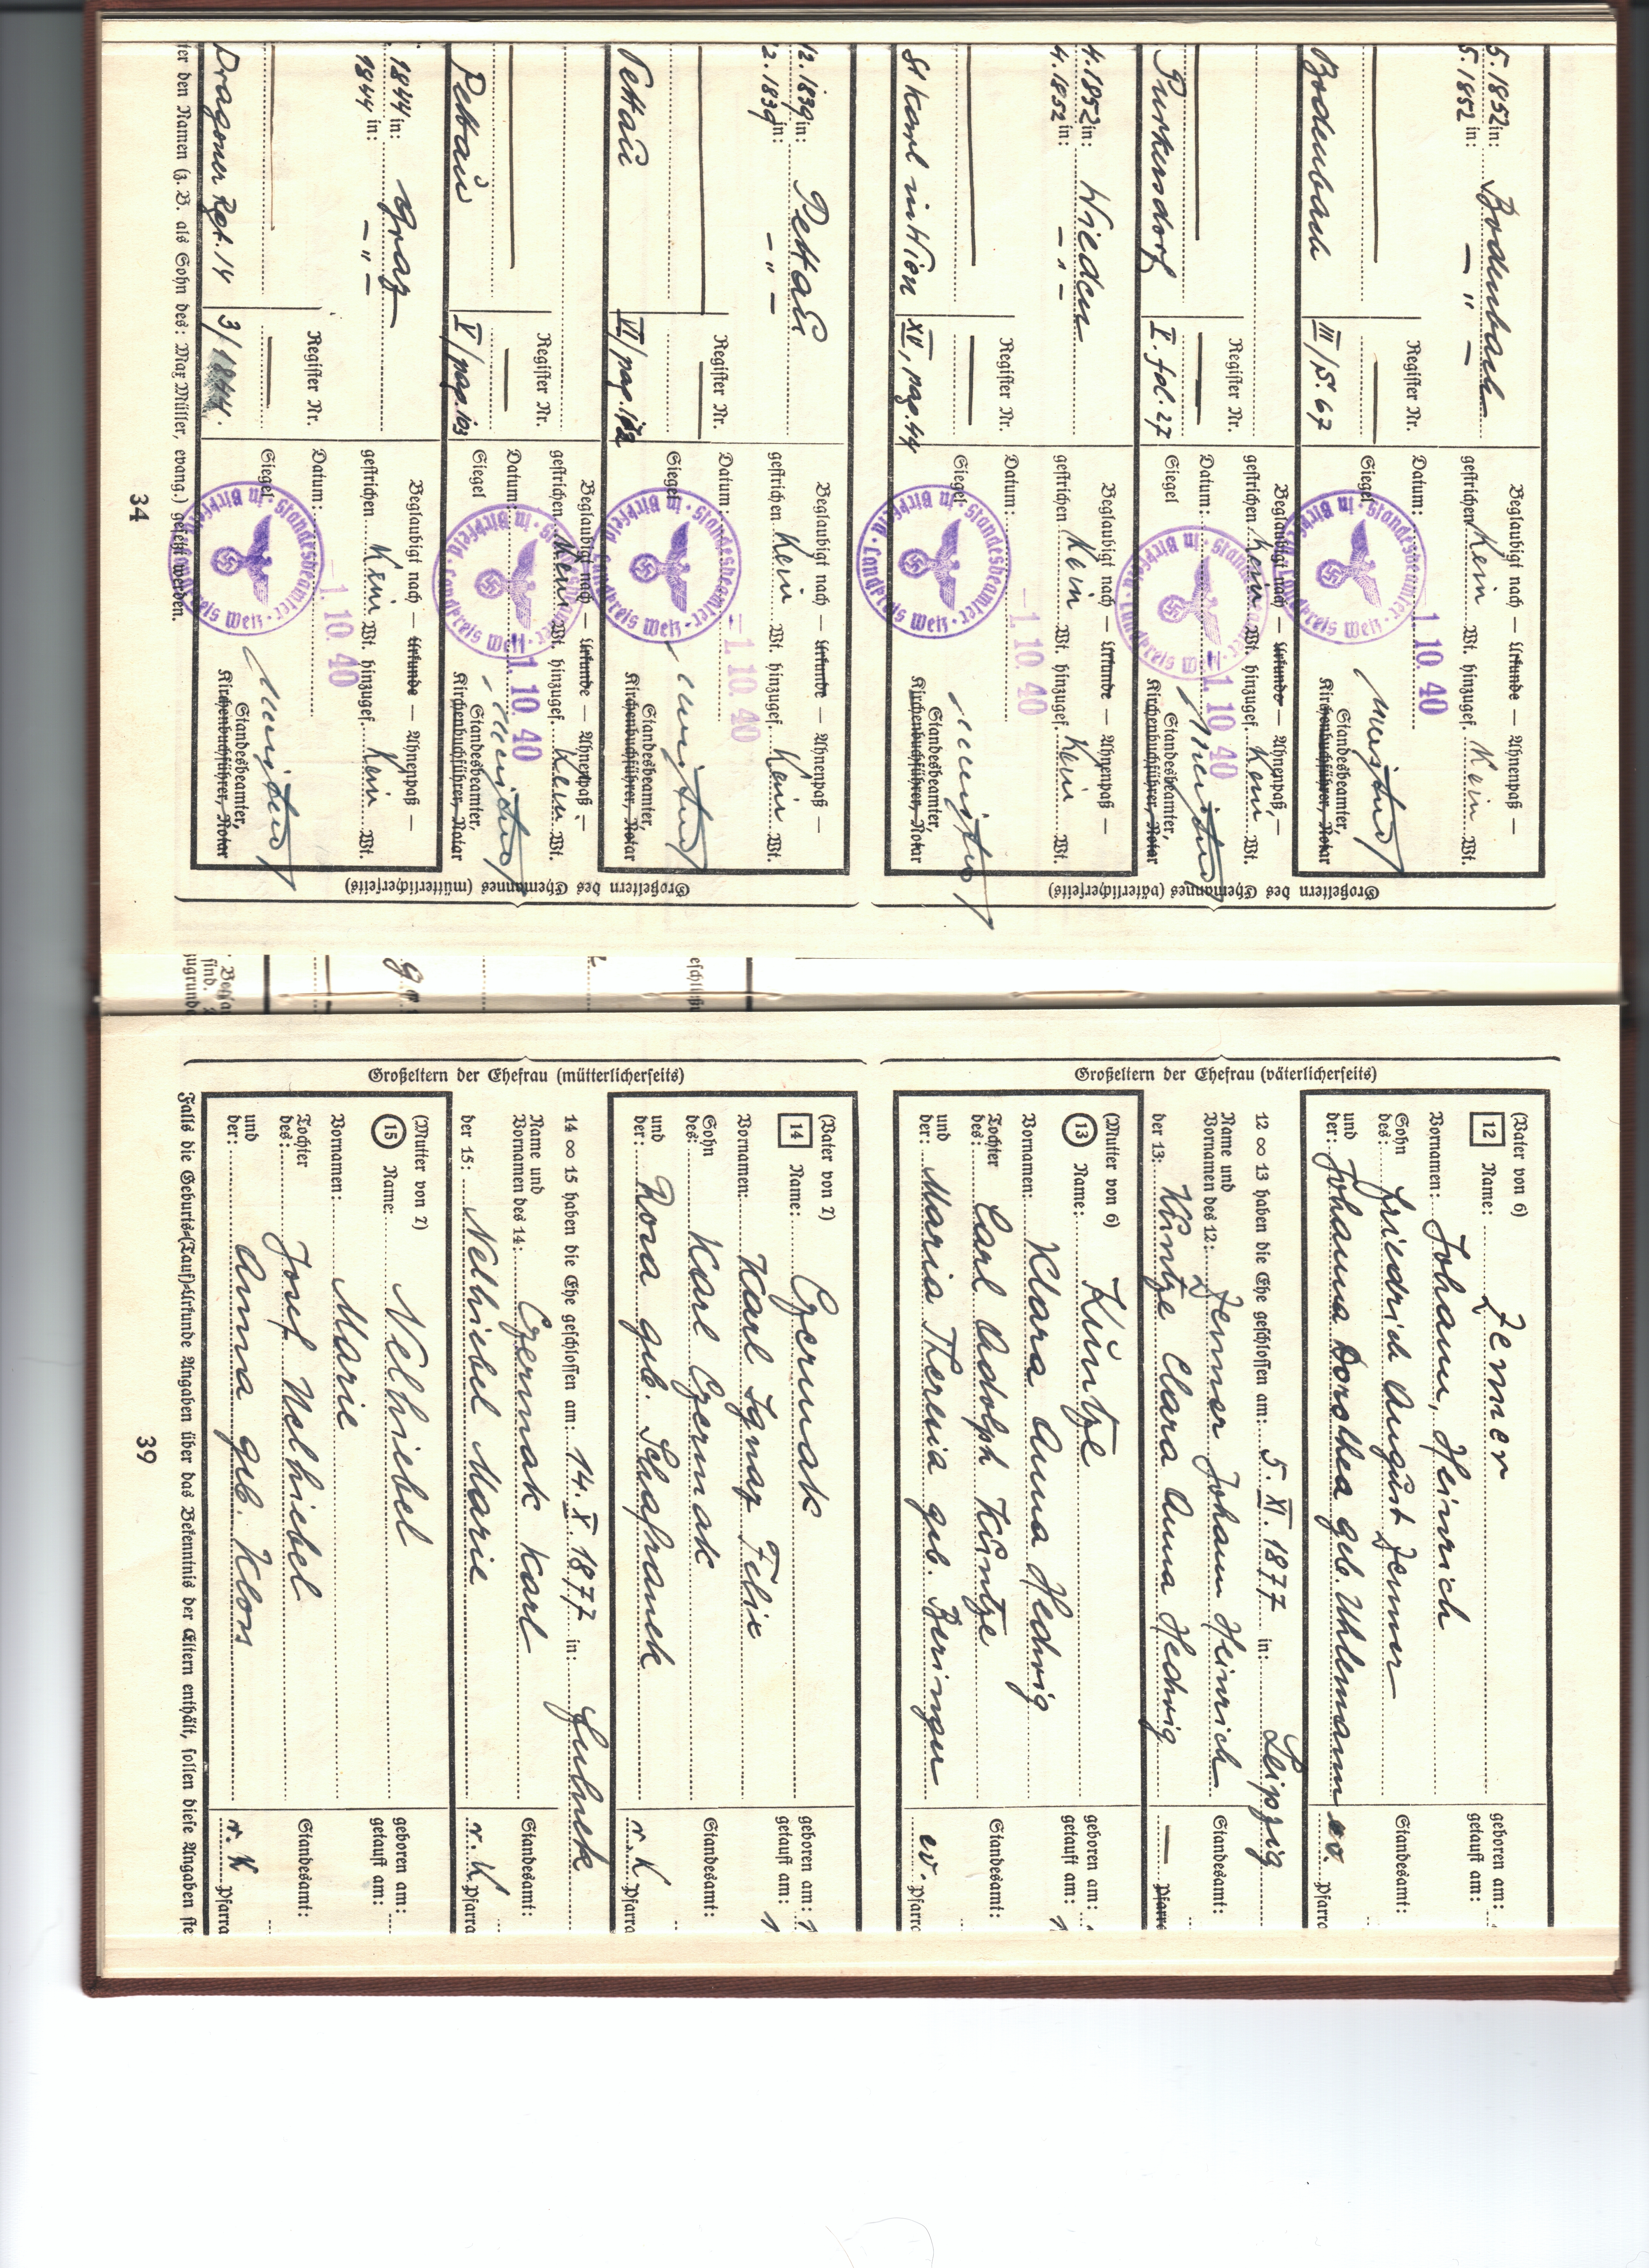 5.1852 in: Bodenbach
5.1852 in: — " —
Register Nr.
Bodenbach III/S. 67
Beglaubigt nach — Urkunde — Ahnenpaß —
gestrichen Kein Wt. hinzugef. Kein Wt.
Datum: 1. 10. 40
Siegel
Standesbeamter,
Kirchenbuchführer, Notar
Register Nr.
Purkersdorf I. fol. 27
Beglaubigt nach — Urkunde — Ahnenpaß —
gestrichen Kein Wt. hinzugef. Kein Wt.
Datum: 1. 10. 40
Siegel
Standesbeamter,
Kirchenbuchführer, Notar
4.1852 in: Wieden
4.1852 in: — " —
Register Nr.
St Karl in Wien XV, pag. 44
Beglaubigt nach — Urkunde — Ahnenpaß —
gestrichen Kein Wt. hinzugef. Kein Wt.
Datum: -1. 10. 40
Siegel
Standesbeamter,
Kirchenbuchführer, Notar
Großeltern des Ehemannes (väterlicherseits)
12. 1839 in: Pettau
2. 1839 in: — " —
Register Nr.
Pettau VI/pag.
Beglaubigt nach — Urkunde — Ahnenpaß —
gestrichen Kein Wt. hinzugef. Kein Wt.
Datum: -1. 10. 40
Siegel
Standesbeamter,
Kirchenbuchführer, Notar
Register Nr.
Pettau V/pag. 103
Beglaubigt nach — Urkunde — Ahnenpaß —
gestrichen Kein Wt. hinzugef. Kein Wt.
Datum: 1. 10. 40
Siegel
Standesbeamter,
Kirchenbuchführer, Notar
1844 in: Graz
1844 in: — " —
Register Nr.
Dragoner Rgt. 14 3/1844.
Beglaubigt nach — Urkunde — Ahnenpaß —
gestrichen Kein Wt. hinzugef. Kein Wt.
Datum: -1. 10. 40
Siegel
Standesbeamter,
Kirchenbuchführer, Notar
Großeltern des Ehemannes (mütterlicherseits)
Standesbeamter · in Birkfeld · Landkreis Weiz ·
ter den Namen (z. B. als Sohn des: Max Müller, evang.) gesetzt werden.
34
Großeltern der Ehefrau (väterlicherseits)
(Vater von 6)
12 Name: Zemer
Vornamen: Johann, Heinrich
Sohn des: Friedrich August Zemmer
und der: Johanna Dorothea geb. Uhlemann
geboren am:
getauft am:
Standesamt:
ev. Pfarra
12 ∞ 13 haben die Ehe geschlossen am: 5. XI. 1877 in: Leipzig
Name und Vornamen des 12: Zemmer Johann Heinrich Standesamt:
der 13: Küntze Clara Anna Hedwig — Pfarra
(Mutter von 6)
13 Name: Küntze
Vornamen: Klara Anna Hedwig
Tochter des: Carl Adolph Küntze
und der: Maria Theresia geb. Beringer
geboren am:
getauft am: 1
Standesamt:
ev. Pfarra
Großeltern der Ehefrau (mütterlicherseits)
(Vater von 7)
14 Name: Czermak
Vornamen: Karl Ignaz Felix
Sohn des: Karl Czermak
und der: Rosa geb. Schafranek
geboren am: 1
getauft am: 1
Standesamt:
r. K Pfarra
14 ∞ 15 haben die Ehe geschlossen am: 14. X. 1877 in: Fulnek
Name und Vornamen des 14: Czermak Karl Standesamt:
der 15: Nelhiebel Marie r. K. Pfarra
(Mutter von 7)
15 Name: Nelhiebel
Vornamen: Marie
Tochter des: Josef Nelhiebel
und der: Anna geb. Klos
geboren am:
getauft am:
Standesamt:
r. K Pfarra
Falls die Geburts-(Tauf)-Urkunde Angaben über das Bekenntnis der Eltern enthält, sollen diese Angaben
39